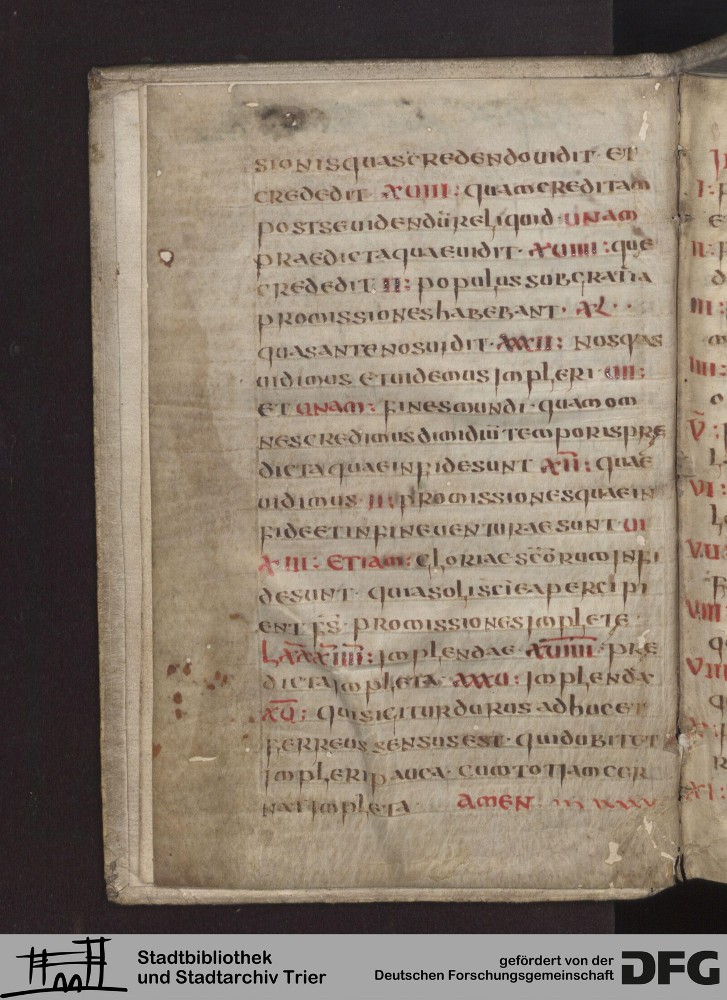 sionisquascredendouidit · et
crededit xuiii : quamcreditam
postseuidendūreliquid · unam
praedictaquaeuidit · xuiiii : que
crededit ii : populussubgratīa
promissioneshabebant · xl · ·
quasantenosuidit · xxxii : nosquas
uidimus etuidemus impleri · iiii :
et unam : finesmundi · quamom
nescredimusdimidiūtemporispre
dictaquaeinfidesunt xii : quae
uidimus · ii : promissionesquaein
fideetinfineuenturaesunt ui
xiii : etiam : gloriaesc̄orum infi
desunt · quiasoliscieapercipi
ent f̄s̄ · promissionesimplete ·
lxxxiiii : implendae · xuiiii · pre
dictaimpleta · xxxu : implenda
xu : quisigiturdurusadhucet
ferreussensusest · quidubitet
impleripauca · cumtotiamcer
natimpleta · amen
Stadtbibliothek
und Stadtarchiv Trier
gefördert von der
Deutschen Forschungsgemeinschaft
DFG